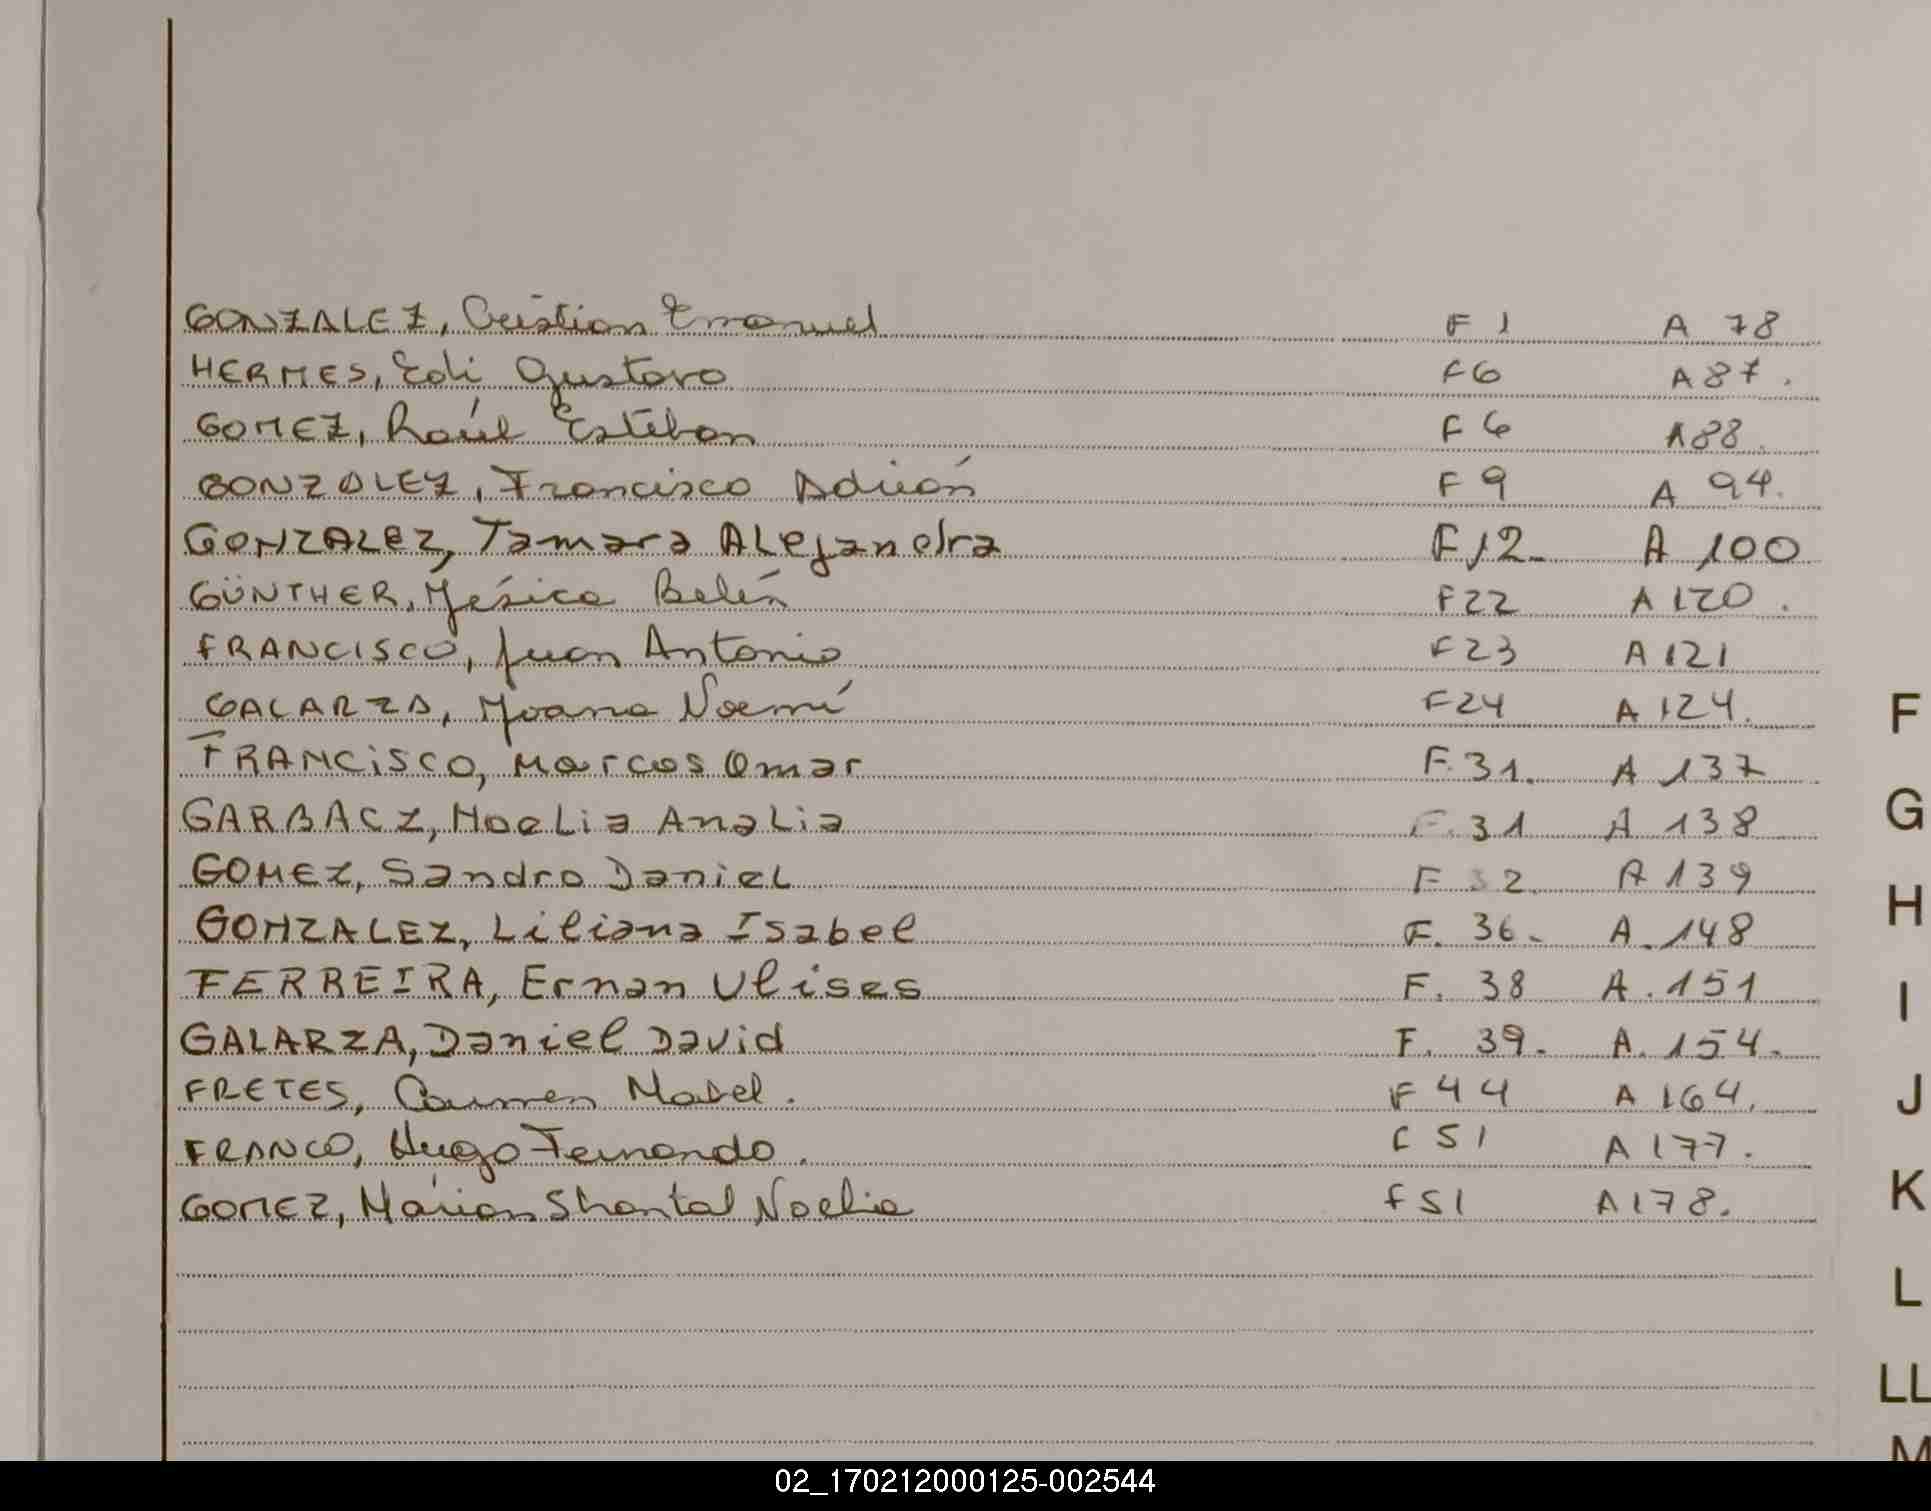 GONZALEZ, Cristian Emanuel F 1 A 78
HERMES, Edi Gustavo F6 A87.
GOMEZ, Raúl Esteban F 6 A88.
GONZALEZ, Francisco Adrián F 9 A 94.
GONZALEZ, Tamara ALejandra F12- A 100
GÜNTHER, Yésica Belén F22 A120.
FRANCISCO, Juan Antonio F23 A121
GALARZA, Yoana Noemí F24 A124.
F
FRANCiSCO, Marcos Omar F.31. A 137
G
GARBACZ, NoeLia AnaLia F.31 A 138
GOMEZ, Sandro DanieL F 32. A 139
H
GONZALEZ, Liliana Isabel F. 36- A.148
FERREIRA, Ernan Ulises F. 38 A.151
I
GALARZA, Daniel David F. 39- A.154-
FRETES, Carmen Mabel. F 44 A 164.
J
FRANCO, Hugo Fernando. F 51 A177.
K
GOMEZ, Marian Shantal Noelia F51 A178.
L
LL
M
02_170212000125-002544